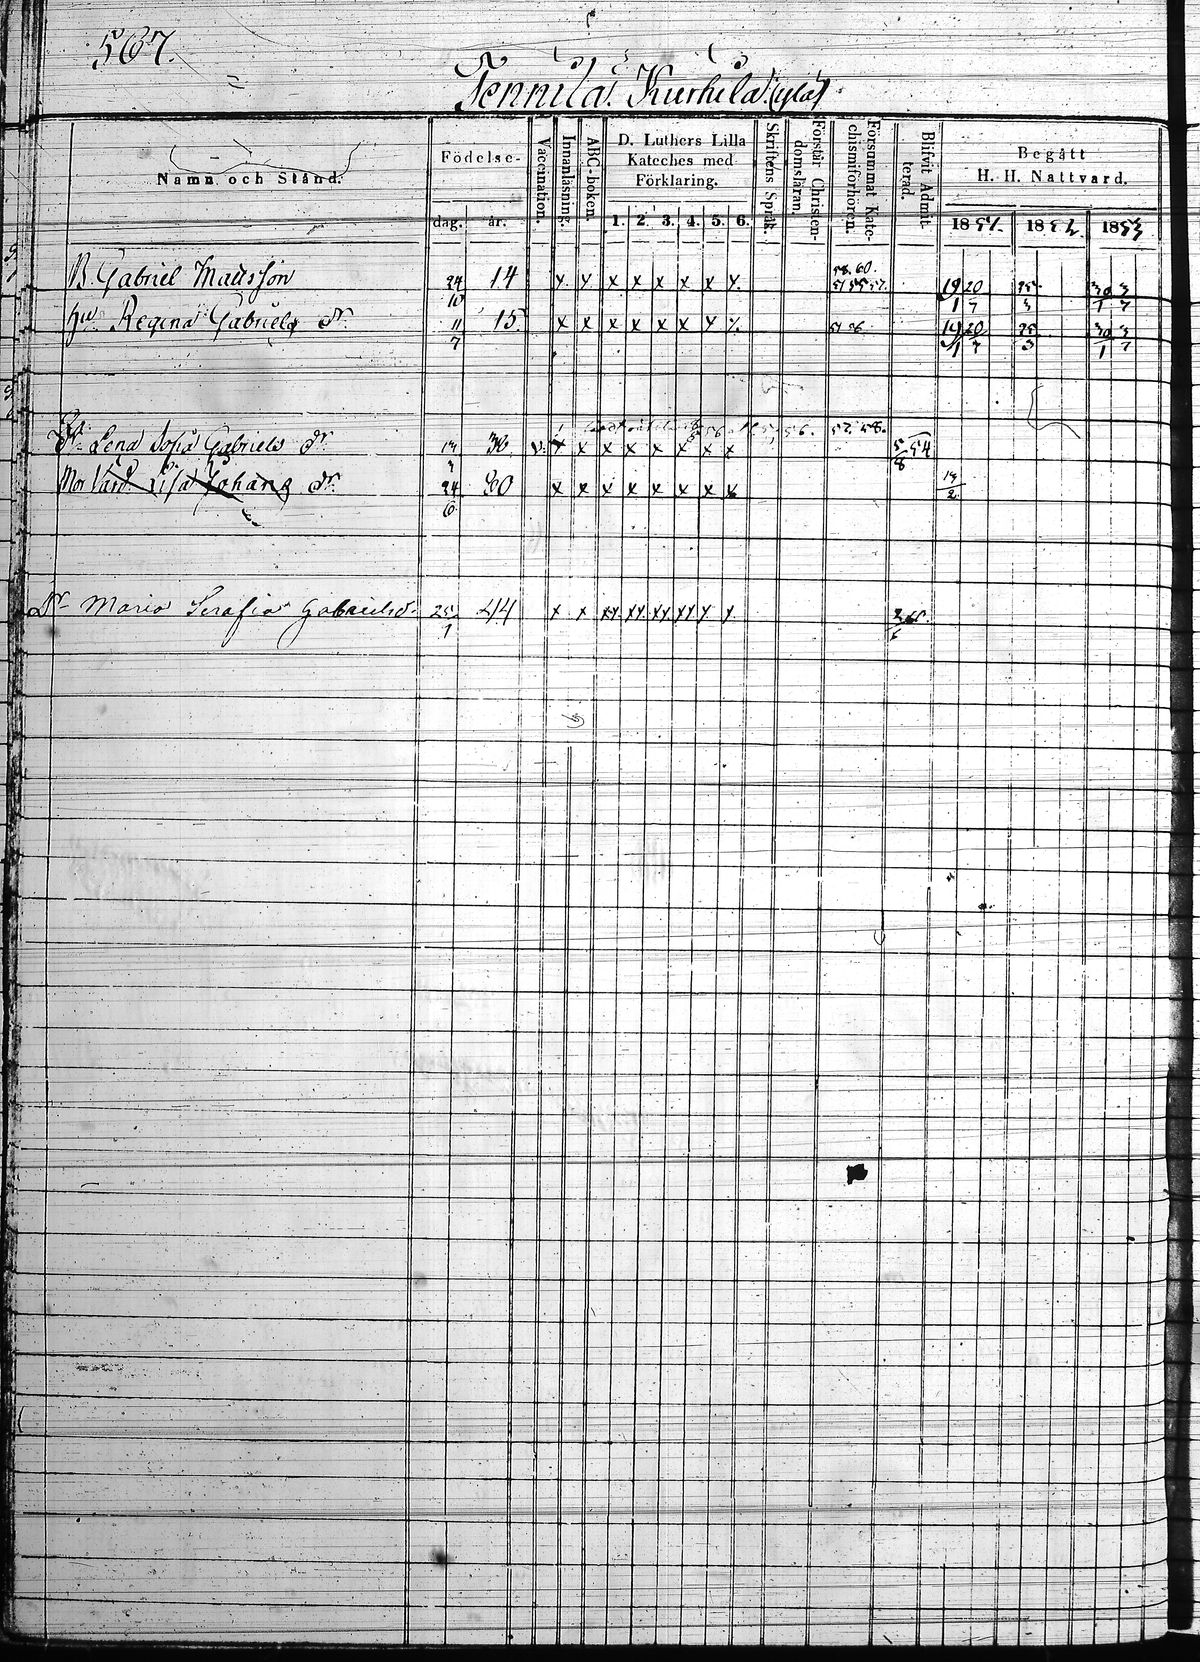 567.
Tennilä. Kurhila (ylä)
Namn och Stånd.
Födelse-
dag. år.
Vaccination.
Innanläsning.
ABC-boken.
D. Luthers Lilla
Kateches med
Förklaring.
1. 2. 3. 4. 5. 6.
Skriftens Språk.
Förstår Christen-
domsläran.
Försummat Kate-
chismiförhören.
Blifvit Admit-
terad.
Begått
H. H. Nattvard.
18 18 1853
B. Gabriel Matsson 24/10 14 x x x x x x x x 58. 60. 19/1 20/7 30/1 3/7
Hu Regina Gabriels dr 11/7 15 x x x x x x x x 19/1 20/7 30/1 3/7
Dr Lena Sofia Gabriels dr v. x x x x x x x x 57. 58. 5/8 54
Mor Lisa Johans dr 24/6 80 x x x x x x x x
Dr Maria Serafia Gabrielsd. 25/1 44 x x xx xx xx xx x x